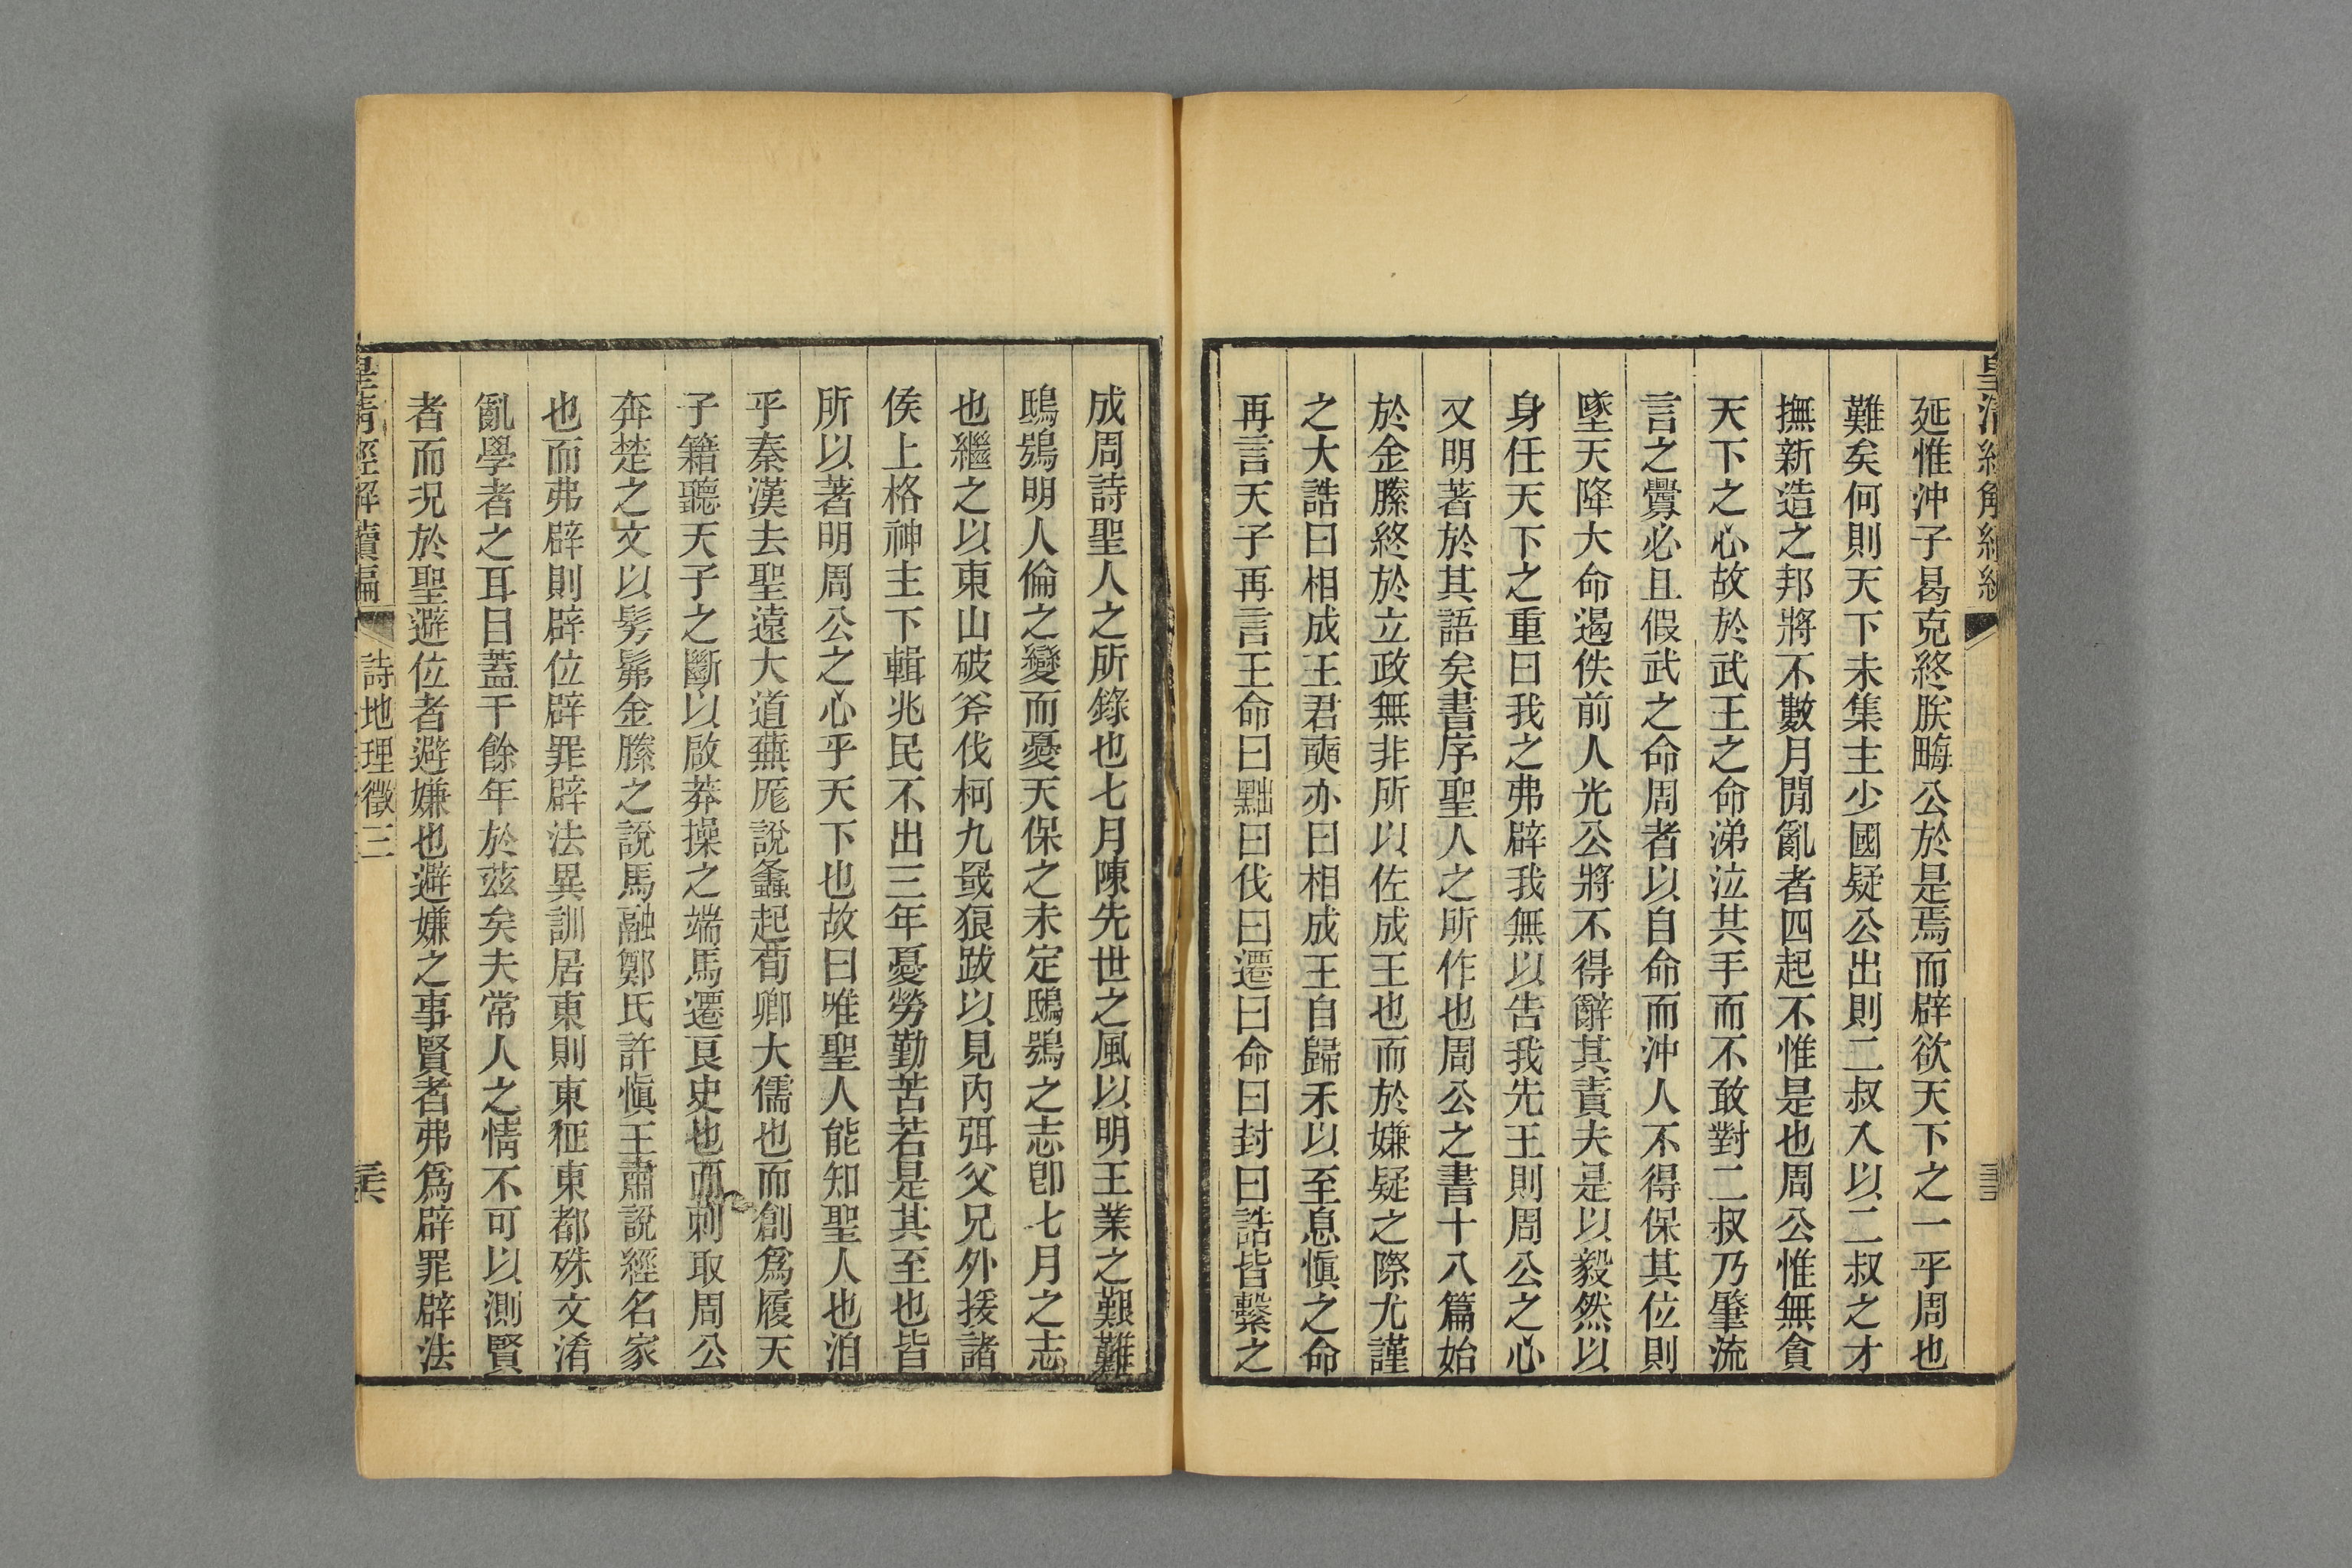 延惟沖子曷克終朕畮公於是焉而辟欲天下之一乎周也
難矣何則天下未集主少國疑公出則二叔入以二叔之才
撫新造之邦將不數月閒亂者四起不惟是也周公惟無貪
天下之心故於武王之命涕泣共手而不敢對二叔乃肇流
言之釁必且假武之命周者以自命而沖人不得保其位則
墜天降大命遏佚前人光公將不得辭其責夫是以毅然以
身任天下之重曰我之弗辟我無以告我先王則周公之心
又明著於其語矣書序聖人之所作也周公之書十八篇始
於金縢終於立政無非所以佐成王也而於嫌疑之際尤謹
之大誥曰相成王君奭亦曰相成王自歸禾以至息愼之命
再言天子再言王命曰黜曰伐曰遷曰命曰封曰誥皆繫之
成周詩聖人之所錄也七月陳先世之風以明王業之艱難
鴟鴞明人倫之變而憂天保之未定鴟鴞之志卽七月之志
也繼之以東山破斧伐柯九罭狼跋以見內弭父兄外援諸
侯上格神主下輯兆民不出三年憂勞勤苦若是其至也皆
所以著明周公之心乎天下也故曰唯聖人能知聖人也洎
乎秦漢去聖遠大道蕪厖說螽起荀卿大儒也而創爲履天
子籍聽天子之斷以啟莽操之端馬遷良史也而刺取周公
奔楚之文以髣髴金縢之說馬融鄭氏許愼王肅說經名家
也而弗辟則辟位辟罪辟法異訓居東則東征東都殊文淆
亂學者之耳目蓋千餘年於茲矣夫常人之情不可以測賢
者而況於聖避位者避嫌也避嫌之事賢者弗爲辟罪辟法
皇清經解續編
詩地理徵三